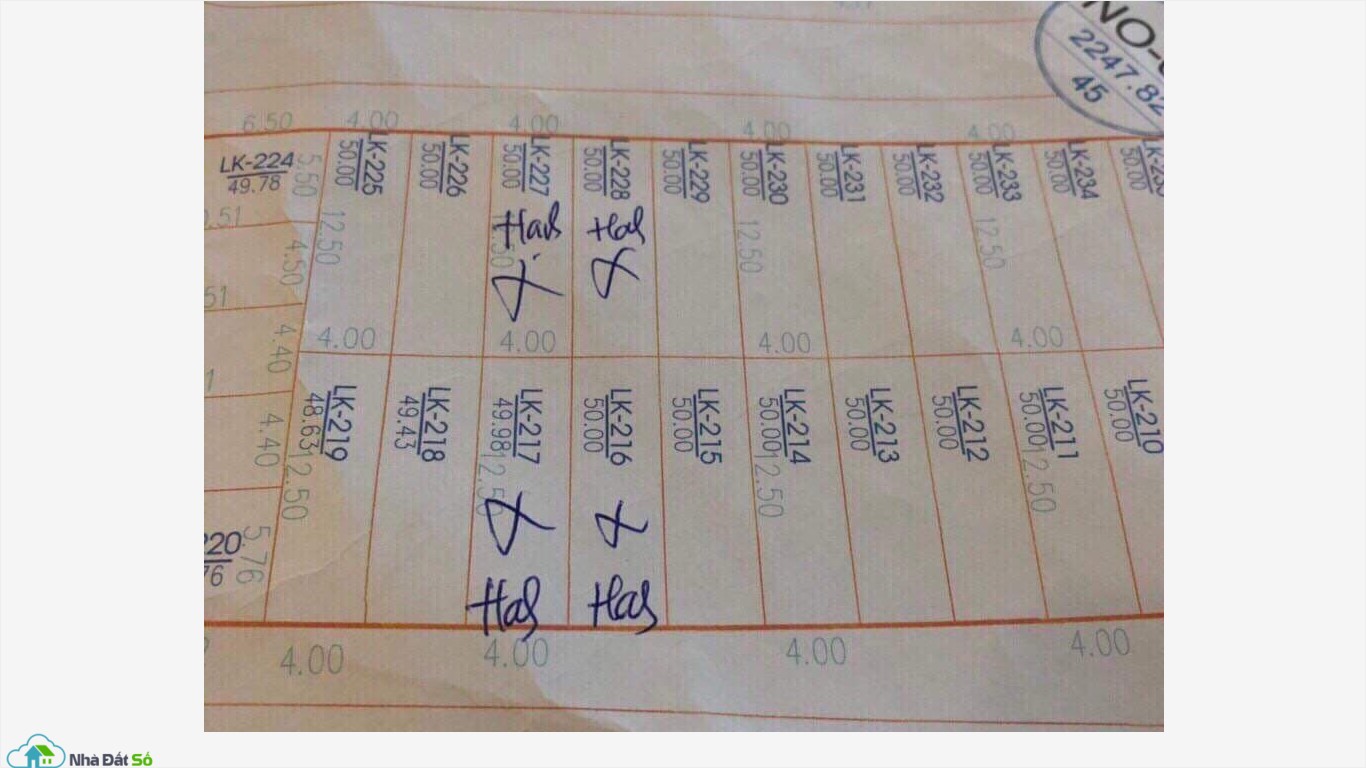 NO-
2247.82
45
6.50
4.00
4.00
4.00
4.00
LK-224
49.78
5.50
LK-225
50.00
LK-226
50.00
LK-227
50.00
LK-228
50.00
LK-229
50.00
LK-230
50.00
LK-231
50.00
LK-232
50.00
LK-233
50.00
LK-234
50.00
50.00
12.50
12.50
12.50
4.50
4.40
4.40
5.76
4.00
4.00
4.00
4.00
LK-219
48.63
12.50
LK-218
49.43
LK-217
49.98
LK-216
50.00
LK-215
50.00
LK-214
50.00
12.50
LK-213
50.00
LK-212
50.00
LK-211
50.00
12.50
LK-210
50.00
4.00
4.00
4.00
4.00
Nhà Đất Số